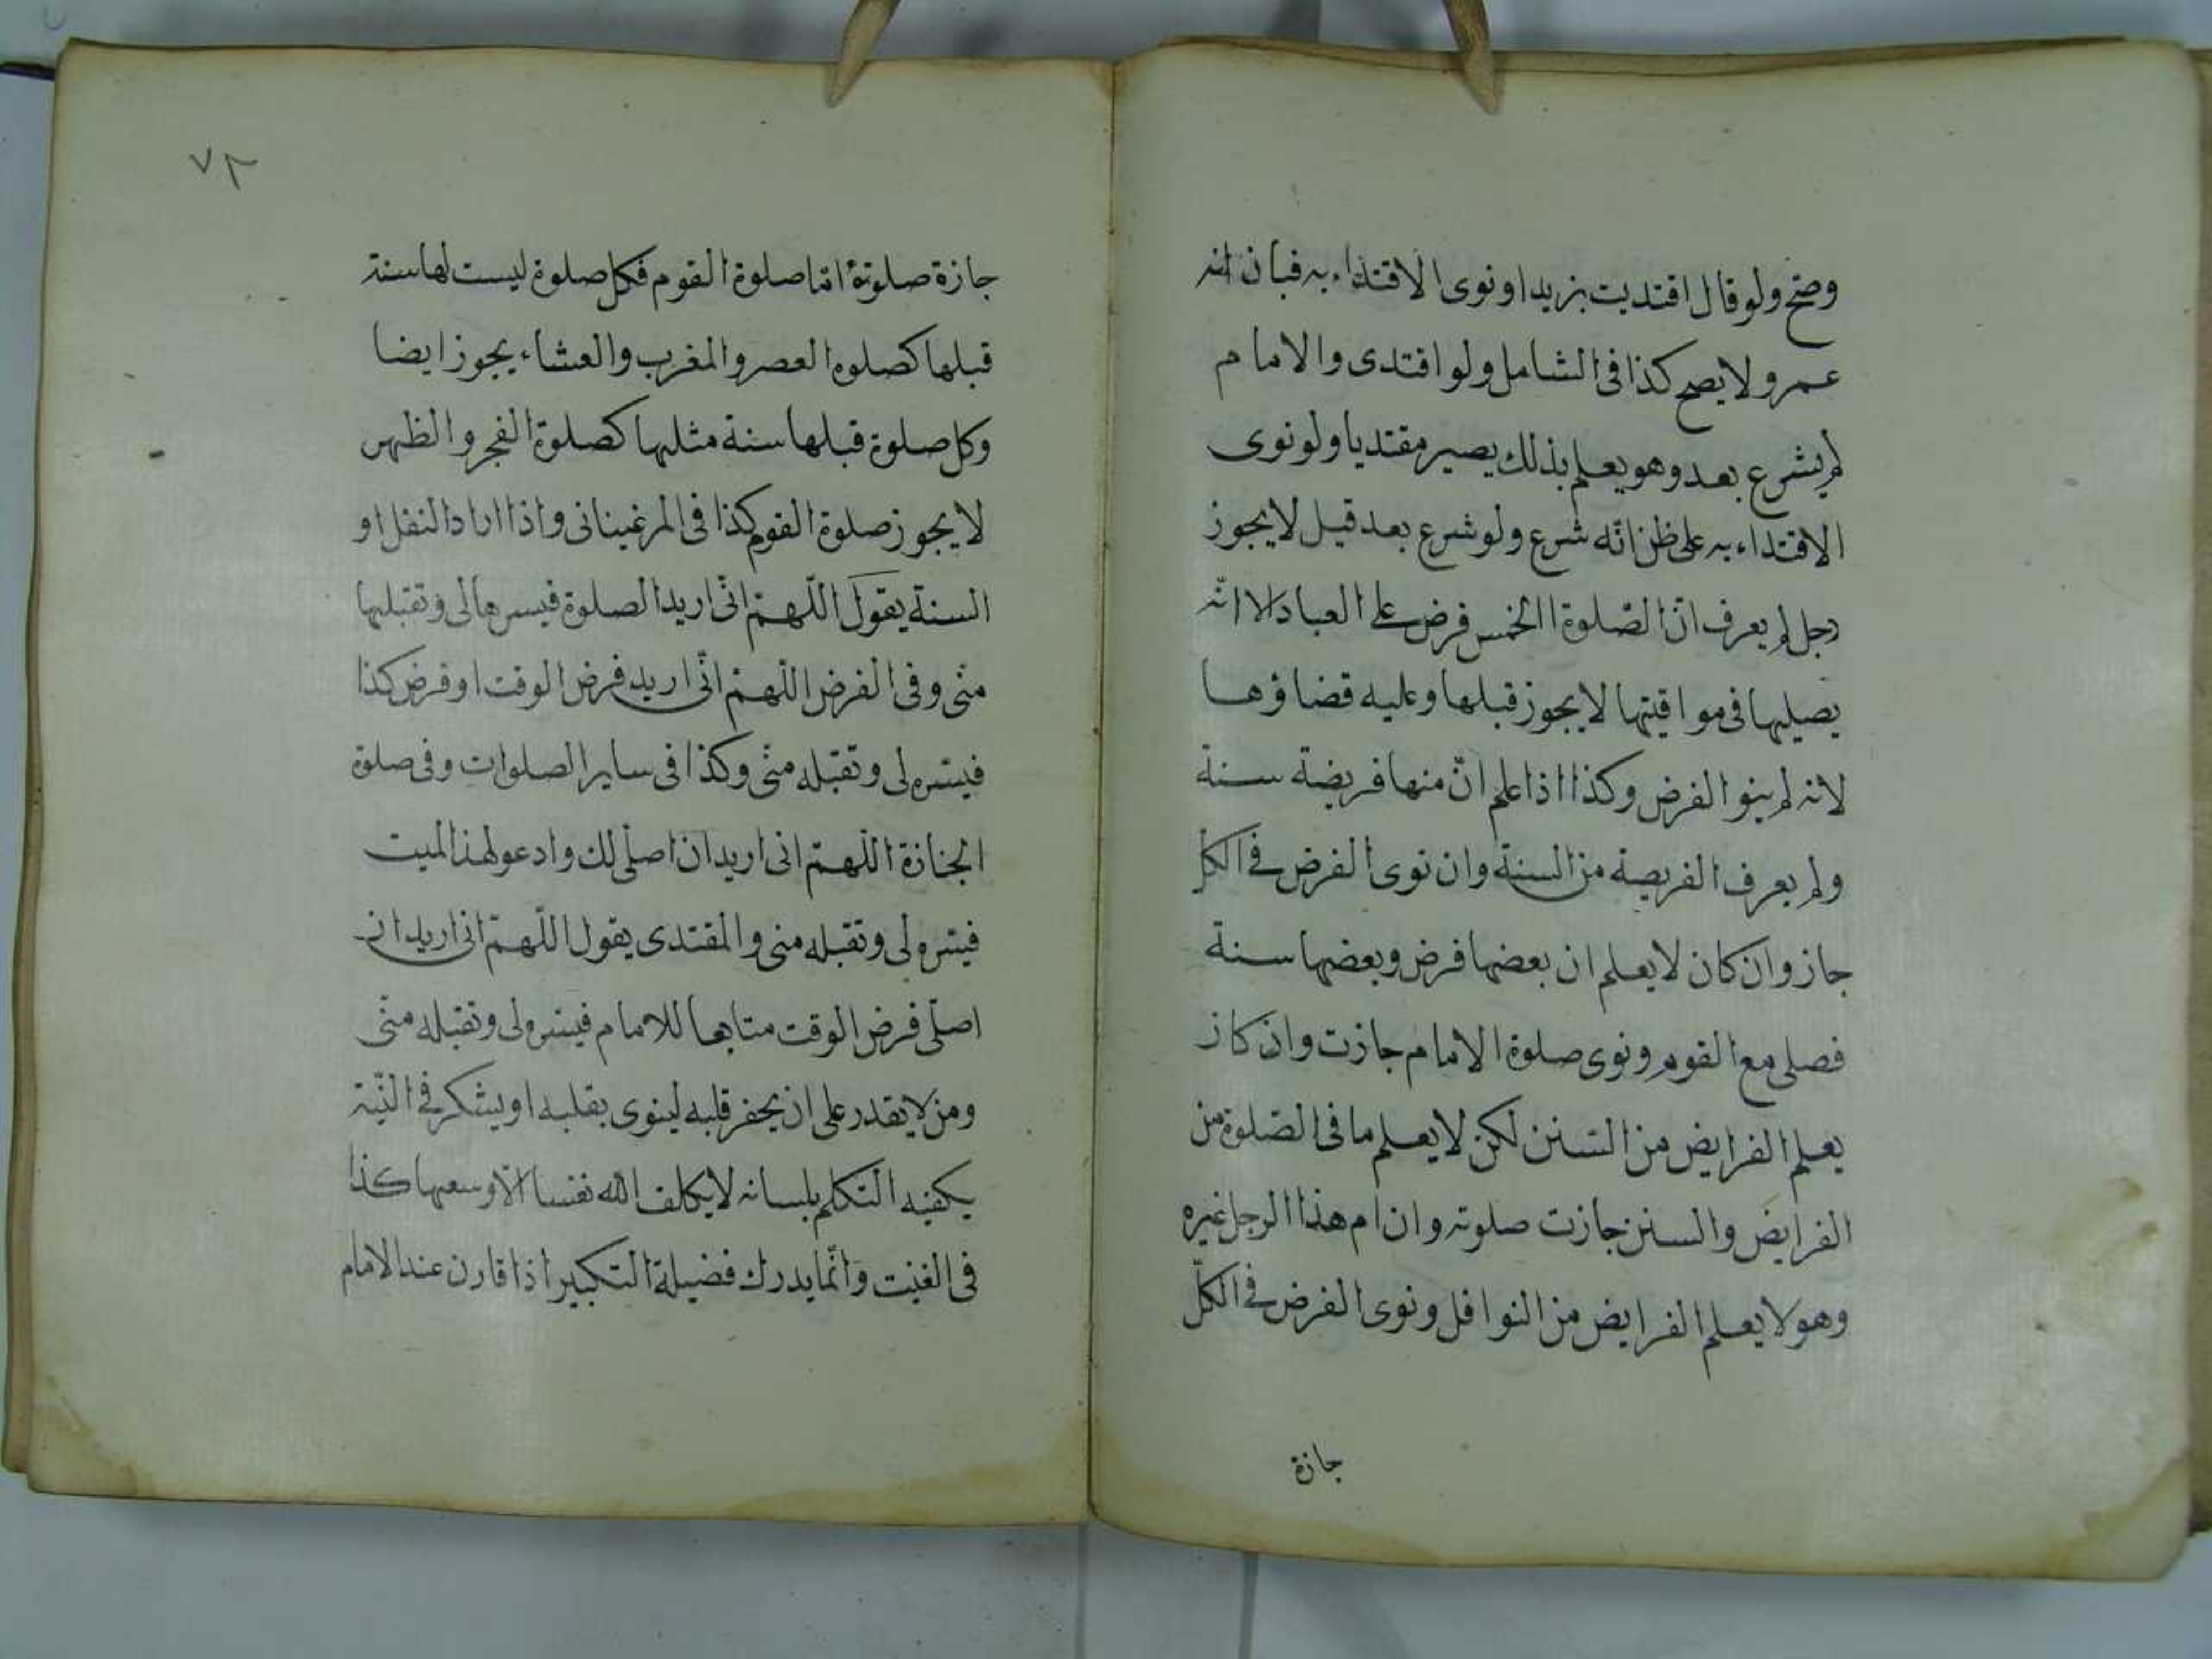 وصح ولو قال اقتديت بزيد او نوى الاقتداء به فبان انه
عمرو لا يصح كذا فى الشامل ولو اقتدى والامام
لم يشرع بعد وهو يعلم بذلك يصير مقتديا ولو نوى
الاقتداء به على ظن انّه شرع ولو شرع بعد قيل لا يجوز
رجل لم يعرف انّ الصّلوة الخمس فرض على العباد الا انّه
يصليها فى مواقيتها لا يجوز قبلها وعليه قضاؤها
لانه لم ينو الفرض وكذا اذا علم انّ منها فريضة سنة
ولم يعرف الفريصة من السنة وان نوى الفرض فى الكل
جاز وان كان لا يعلم ان بعضها فرض وبعضها سنة
فصلى مع القوم ونوى صلوة الامام جازت وان كان
يعلم الفرايض من السّنن لكن لا يعلم ما فى الصّلوة من
الفرايض والسنن جازت صلوته وان ام هذا الرجل غيره
وهو لا يعلم الفرايض من النوافل ونوى الفرض فى الكلّ
جازة
٧٣
جازة صلوتة امّا صلوة القوم فكل صلوة ليست لها سنة
قبلها كصلوه العصر والمغرب والعشاء يجوز ايضا
وكل صلوة قبلها سنة مثليها كصلوة الفجر والظهر
لا يجوز صلوة القوم كذا فى المرغينانى واذا اراد النفل او
السنة يقول اللّهمّ انّى اريد الصلوة فيسرها لى وتقبليها
منّى وفى الفرض اللّهمّ انّى اريد فرض الوقت او فرض كذا
فيسّره لى وتقبله منّى وكذا فى ساير الصلوات وفى صلوة
الجنازة اللّهمّ انى اريد ان اصلّى لك وادعو لهذ الميت
فيسّره لى وتقبله منى والمقتدى يقول اللّهمّ انى اريد ان
اصلّى فرض الوقت متابعا للامام فيسّره لى وتقبله منّى
ومن لا يقدر على ان يحفر قلبه لينوى بقلبه او يشكر فى النّيّة
يكفيه التكلم بلسانه لا يكلف الله نفسا الّا وسعها كذا
فى الغنيت وانّما يدرك فضيلة التكبير اذا قارن عند الامام